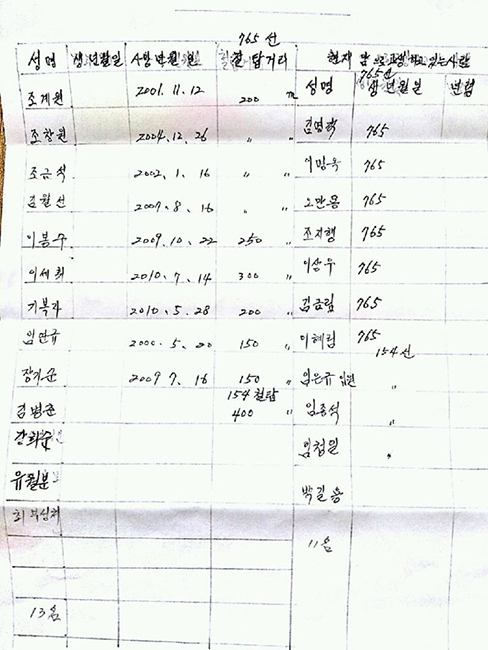 765 선
성명 생년월일 사망년월일 철탑거리 현재 암으로 고생하고 있는사람
765선
조계원 2001.11.12 200 m 성명 생년월일 년령
조창원 2004.12.26 〃 〃 김영락 765
조근식 2002.1.16 〃 〃 765
김월선 2007.8.16 〃 〃 765
이봉주 2009.10.22 250 〃 조지행 765
이세희 2010.7.14 300 〃 이상우 765
기복자 2010.5.28 200 〃 김금림 765
임만규 2000.5.20 150 〃 이혜림 765
154선
장기준 2009 7.16 150 〃 임은규 〃
154 철탑
김범준 400 〃 임종식 〃
강화순 임점원 〃
유월분 박길용
11명
13명